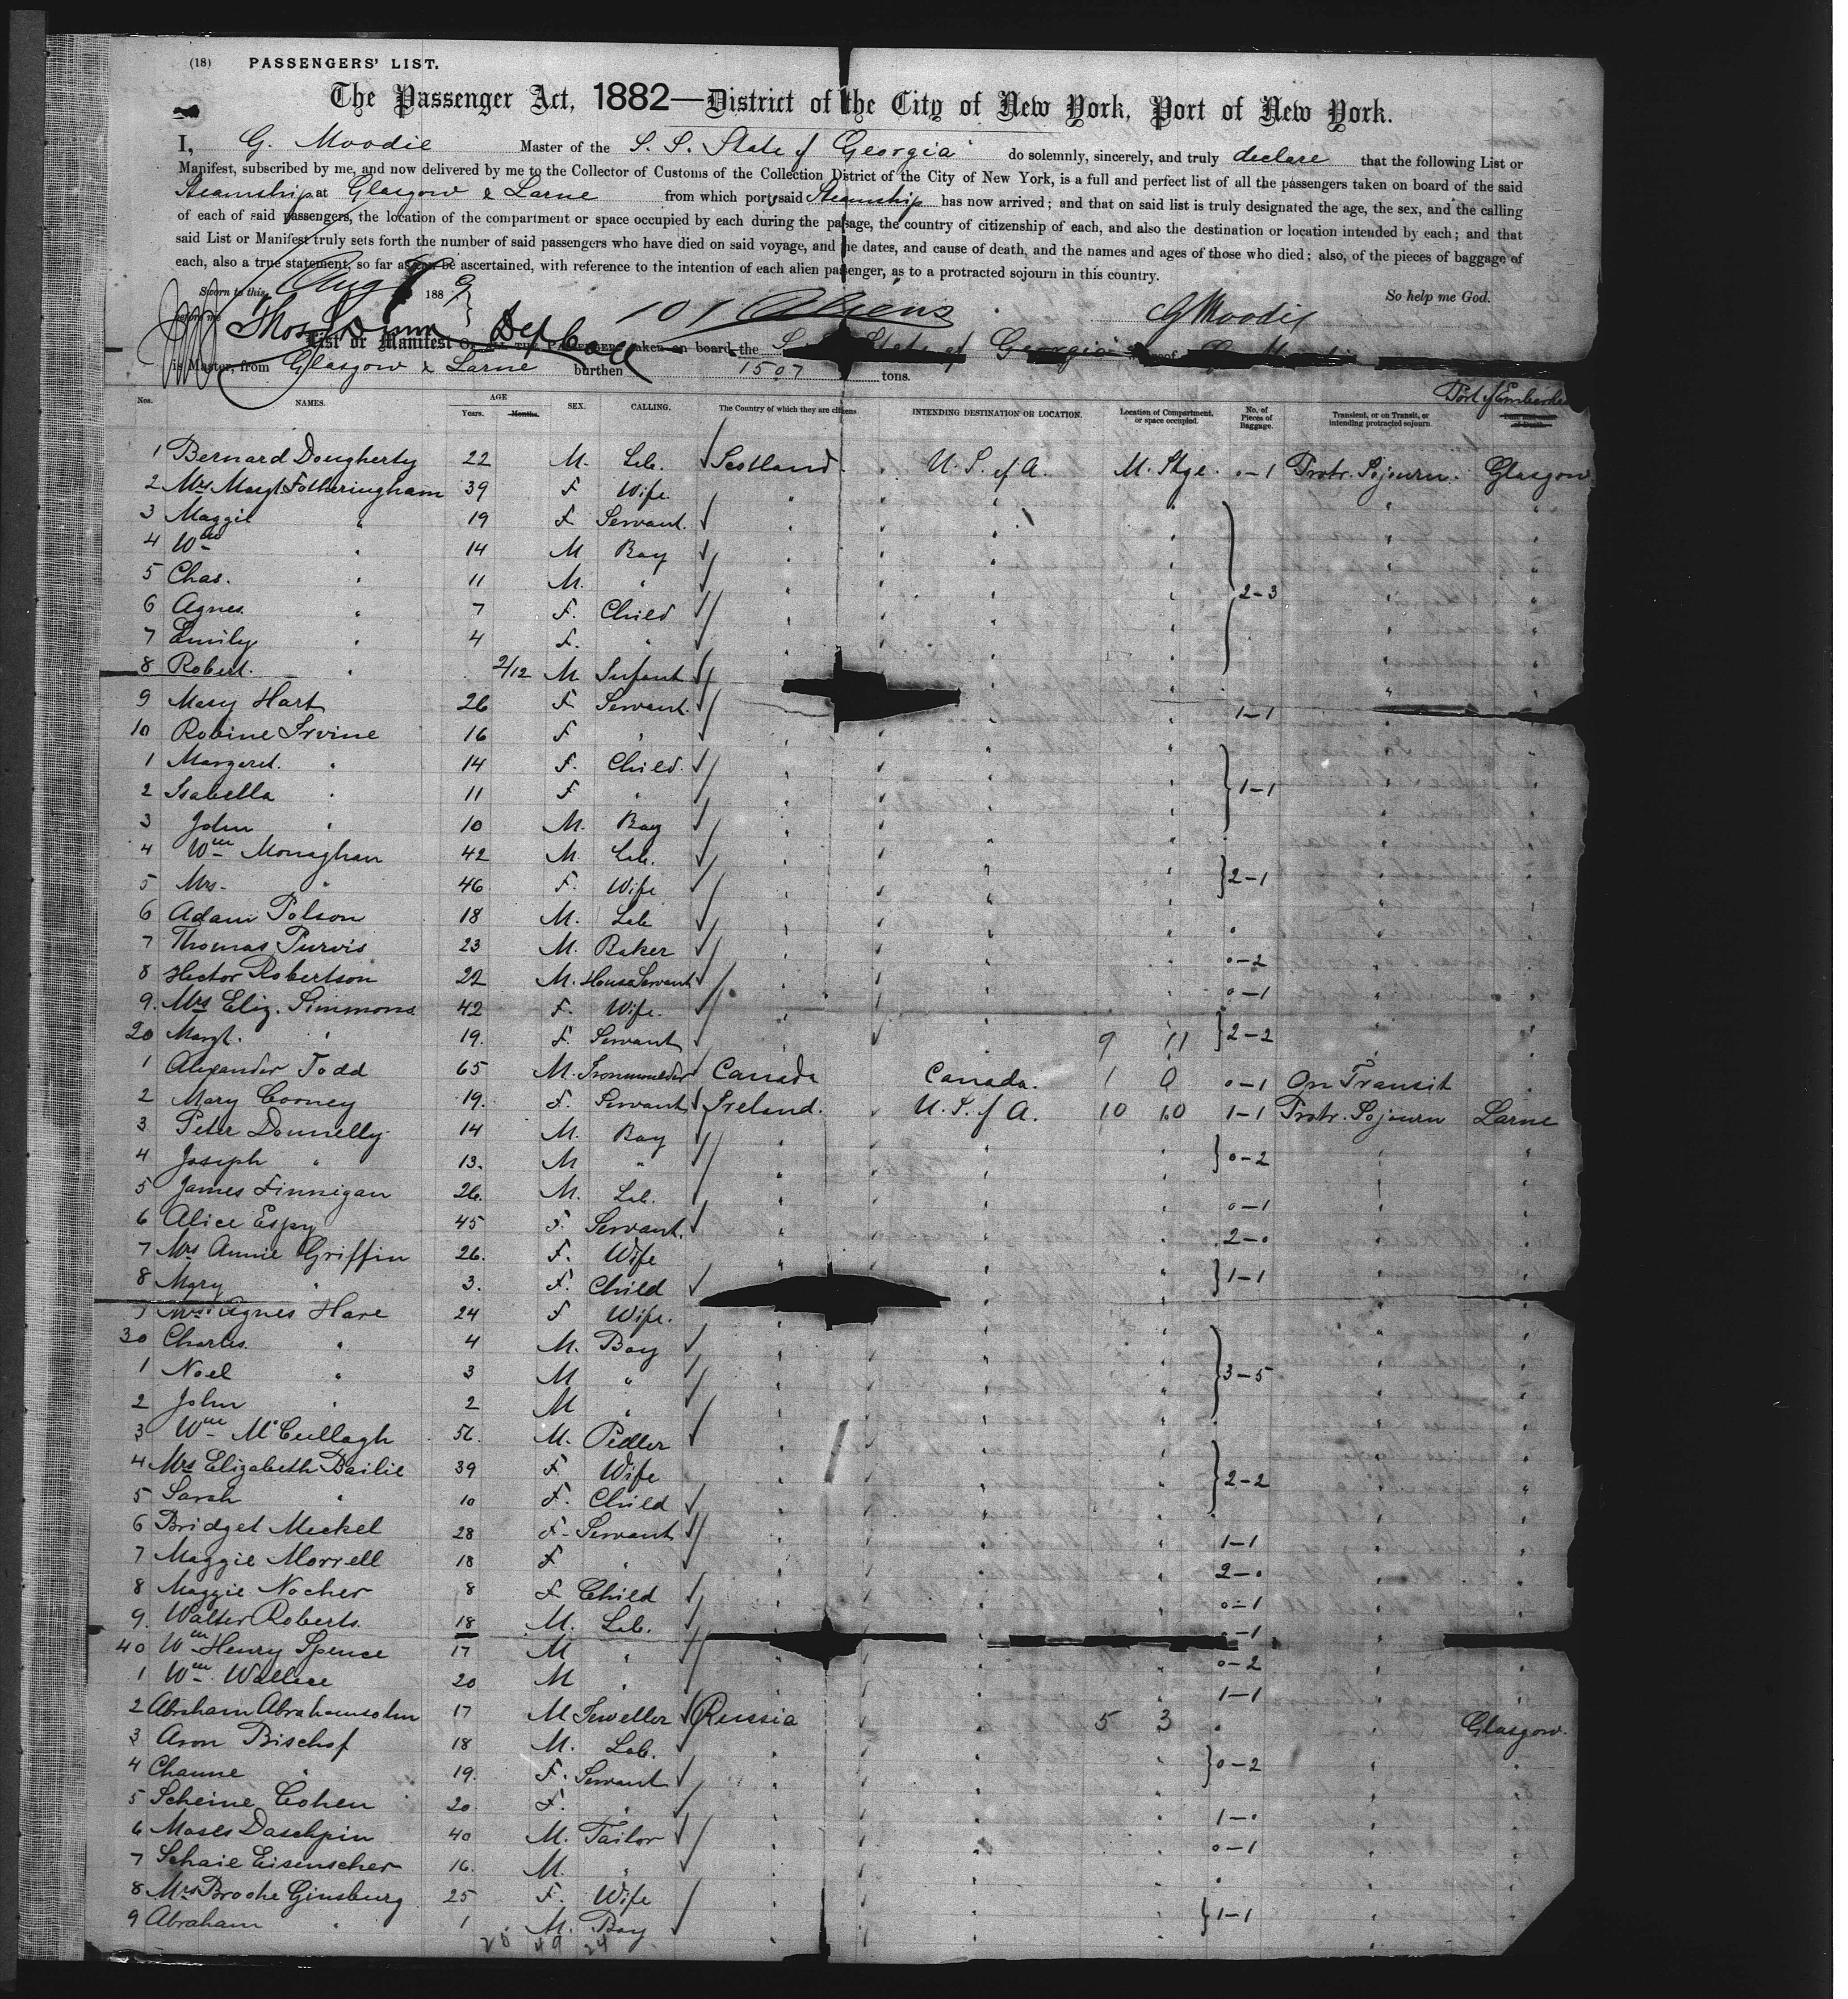 (18) PASSENGERS' LIST.
The Passenger Act, 1882—District of the City of New York, Port of New York.
I, G. Moodie Master of the S. S. State of Georgia do solemnly, sincerely, and truly declare that the following List or
Manifest, subscribed by me, and now delivered by me to the Collector of Customs of the Collection District of the City of New York, is a full and perfect list of all the passengers taken on board of the said
Steamship at Glasgow & Larne from which port said Steamship has now arrived; and that on said list is truly designated the age, the sex, and the calling
of each of said passengers, the location of the compartment or space occupied by each during the passage, the country of citizenship of each, and also the destination or location intended by each; and that
said List or Manifest truly sets forth the number of said passengers who have died on said voyage, and the dates, and cause of death, and the names and ages of those who died; also, of the pieces of baggage of
each, also a true statement, so far as can be ascertained, with reference to the intention of each alien passenger, as to a protracted sojourn in this country.
Sworn to this Aug 188 9 So help me God.
before me Thos Dunn Dep Coll 101 Aliens G Moodie
List or Manifest OF ALL THE PASSENGERS taken on board the State of Georgia
is Master, from Glasgow & Larne burthen 1507 tons.
Nos. NAMES. AGE Years. Months. SEX. CALLING. The Country of which they are citizens. INTENDING DESTINATION OR LOCATION. Location of Compartment, or space occupied. No. of Pieces of Baggage. Transient, or on Transit, or intending protracted sojourn. Port of Embarka
1 Bernard Dougherty 22 M. Lab. Scotland U. S. of A. M. Stge. 0-1 Protr. Sojourn. Glasgow
2 Mrs Margt Fotheringham 39 F Wife " " " " "
3 Maggie " 19 F Servant. " " " " "
4 Wm " 14 M Boy " " " " "
5 Chas. " 11 M. " " " " 2-3 " "
6 Agnes " 7 F. Child " " " " "
7 Emily " 4 F. " " " " " "
8 Robert. " 2/12 M Infant " " " " "
9 Mary Hart 26 F Servant. " " " 1-1 " "
10 Robine Irvine 16 F " " " " " "
1 Margaret. " 14 F. Child. " " " " "
2 Isabella " 11 F " " " " 1-1 " "
3 John " 10 M. Boy " " " " "
4 Wm Monaghan 42 M. Lab. " " " " "
5 Mrs. " 46 F. Wife " " " 2-1 " "
6 Adam Polson 18 M. Lab " " " " " "
7 Thomas Purvis 23 M. Baker " " " 0-2 " "
8 Hector Robertson 22 M. House Servant " " " 0-1 " "
9. Mrs Eliz. Simmons 42 F. Wife. " " " " "
20 Margt. " 19. F. Servant " " 9 11 2-2 " "
1 Alexander Todd 65 M. Ironmoulder Canada Canada. 1 0 0-1 On Transit "
2 Mary Cooney 19. F. Servant Ireland. U. S. of A. 10 10 1-1 Protr. Sojourn Larne
3 Peter Donnelly 14 M. Boy " " " " "
4 Joseph " 13. M " " " " 0-2 " "
5 James Finnigan 26. M. Lab. " " " 0-1 " "
6 Alice Espy 45 F. Servant. " " " 2-0 " "
7 Mrs Annie Griffin 26. F. Wife " " " " "
8 Mary " 3. F. Child " " " 1-1 " "
9 Mrs Agnes Hare 24 F Wife. " " " " "
30 Charles. " 4 M. Boy " " " " "
1 Noel " 3 M " " " " 3-5 " "
2 John " 2 M " " " " " "
3 Wm McCullagh 56. M. Pedler " " " " " "
4 Mrs Elizabeth Bailie 39 F. Wife " " " 2-2 " "
5 Sarah " 10 F. Child " " " " "
6 Bridget Meekel 28 F. Servant " " " 1-1 " "
7 Maggie Morrell 18 F " " " " 2-0 " "
8 Maggie Nocher 8 F. Child " " " 0-1 " "
9. Walter Roberts. 18 M. Lab. " " " 0-1 " "
40 Wm Henry Spence 17 M " " " " 0-2 " "
1 Wm Wallace 20 M " " " " 1-1 " "
2 Abraham Abrahamsohn 17 M Jeweller Russia " 5 3 " " Glasgow.
3 Aron Bischof 18 M. Lab. " " " " "
4 Channe " 19. F. Servant " " " 0-2 " "
5 Scheine Cohen 20 F. " " " " 1-0 " "
6 Moses Daschpin 40 M. Tailor " " " 0-1 " "
7 Schaie Eisenscher 16. M. " " " " " " "
8 Mrs Broche Ginsburg 25 F. Wife " " " " "
9 Abraham " 1 M. Boy " " " 1-1 " "
25 49 24